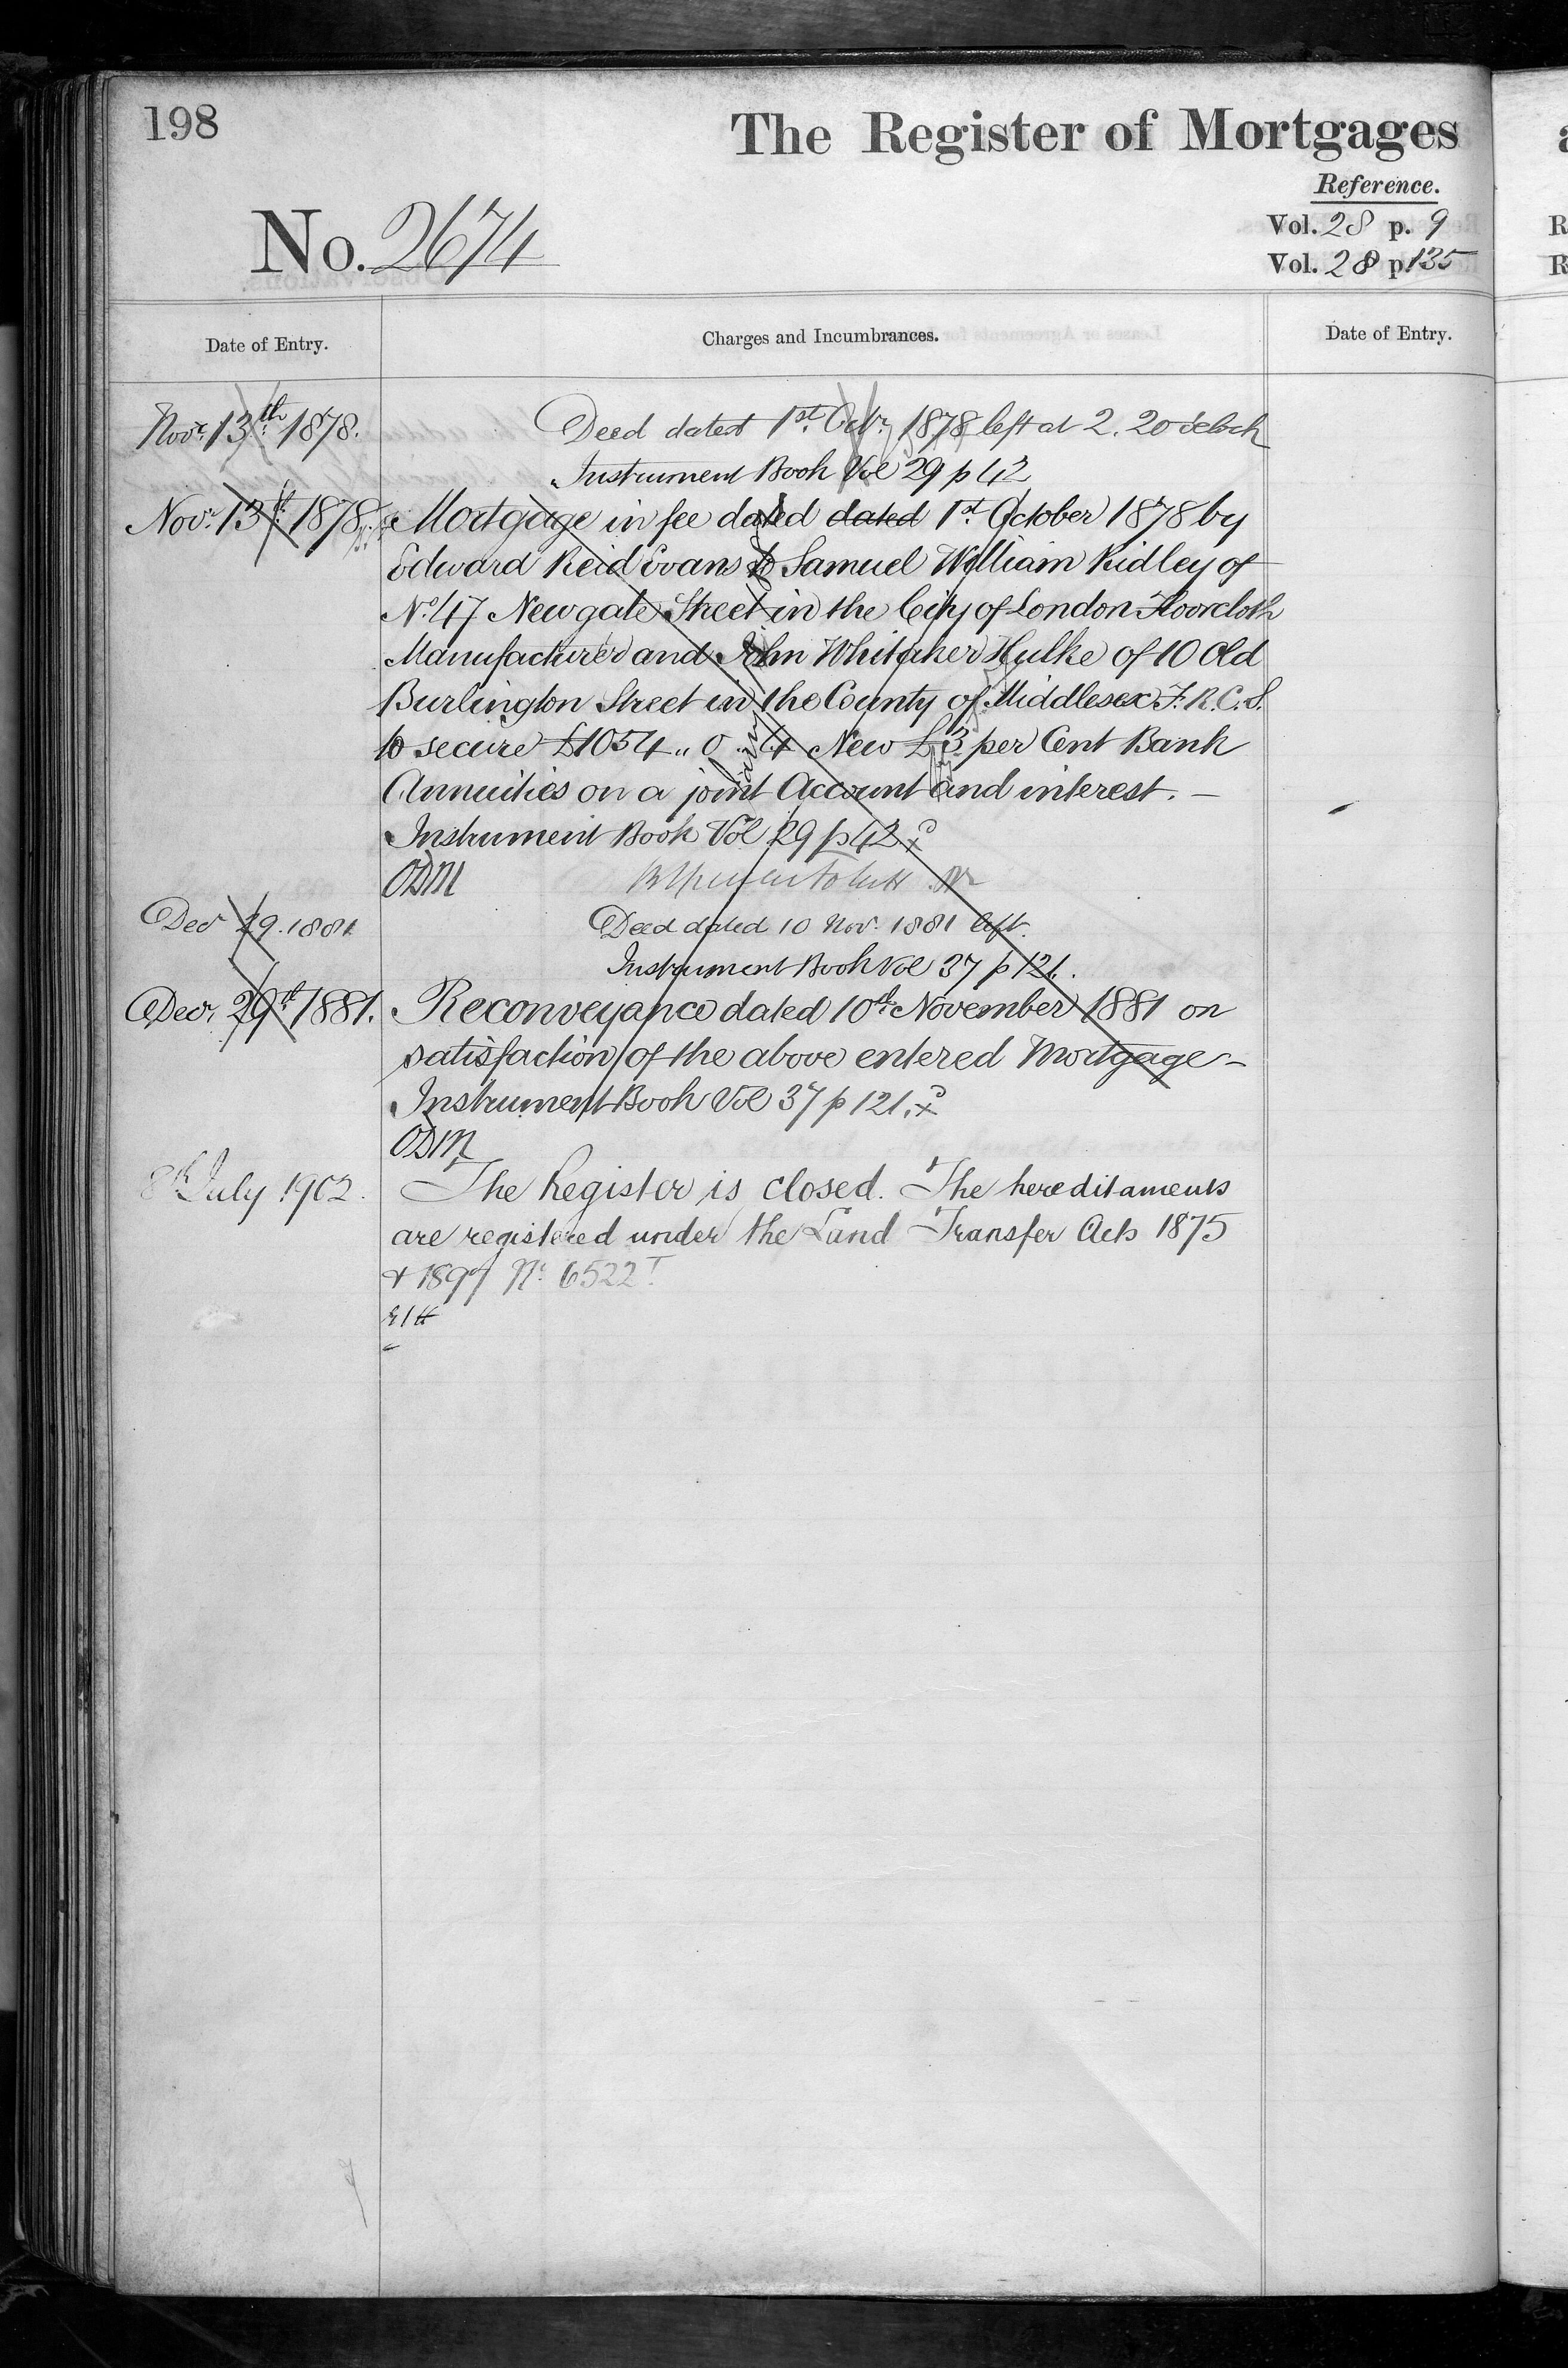 198
The Register of Mortgages
Reference.
No. 2674
Vol. 28 p. 9
Vol. 28 p 135
Date of Entry.
Charges and Incumbrances.
Date of Entry.
Novr. 13th 1878.
Deed dated 1st Octr. 1878 left at 2.20 oclock
Instrument Book Vol 29 p 42
Novr. 13th 1878
Mortgage in fee dated dated 1st October 1878 by
Edward Reid Evans to Samuel William Ridley of
No. 47 Newgate Street in the City of London Floorcloth
Manufacturer and John Whitaker Hulke of 10 Old
Burlington Street in the County of Middlesex F.R.C.S.
to secure £1054 " 0 " 4 New £3 per Cent Bank
Annuities on a joint Account and interest. —
Instrument Book Vol 29 p 42
ODM
Dec 29. 1881
Deed dated 10 Nov. 1881 left.
Instrument Book Vol 37 p 121.
Decr. 29th 1881.
Reconveyance dated 10th November 1881 on
satisfaction of the above entered Mortgage —
Instrument Book Vol 37 p 121.
ODM
8th July 1902.
The Register is closed. The hereditaments
are registered under the Land Transfer Acts 1875
& 1897 No. 6522